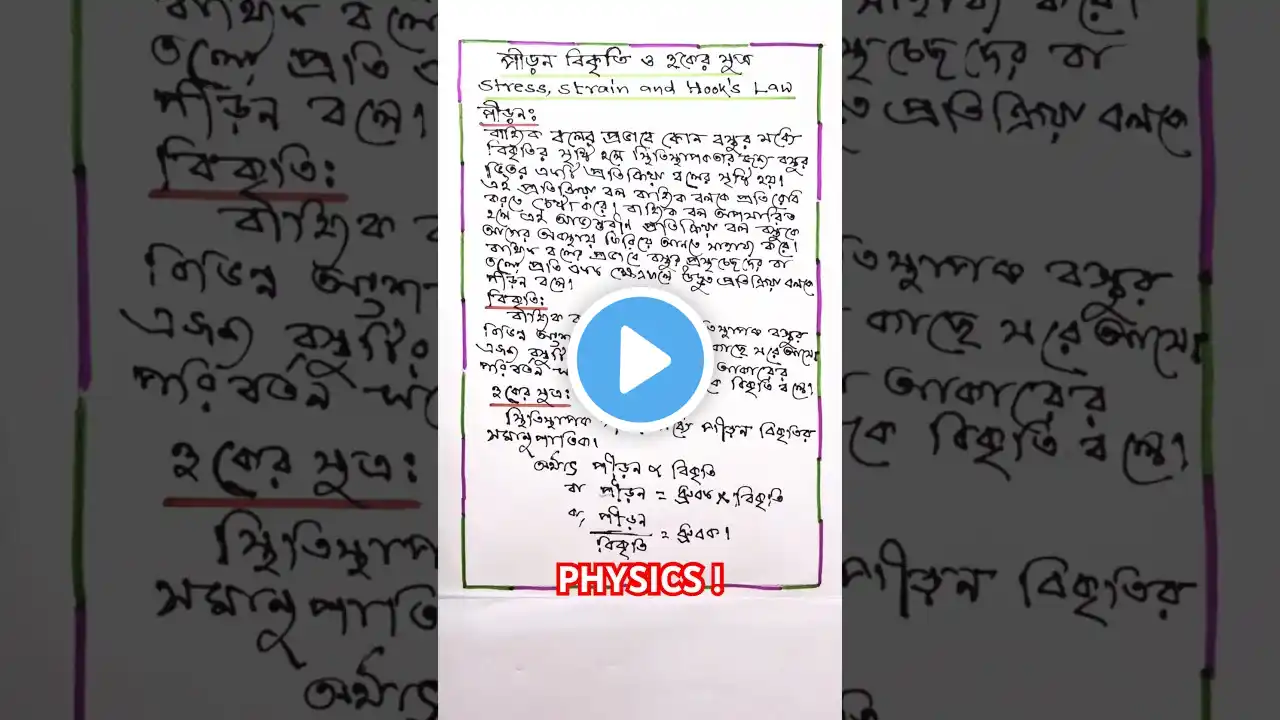 পীড়ন বিকৃতি ও হুকের সুত্র
Stress, Strain and Hook's Law
পীড়নঃ
বাহ্যিক বলের প্রভাবে কোন বস্তুর মধ্যে
বিকৃতির সৃষ্টি হলে স্থিতিস্থাপকতার জন্য বস্তুর
ভিতর একটি প্রতিক্রিয়া বলের সৃষ্টি হয়।
এই প্রতিক্রিয়া বল বাহ্যিক বলকে প্রতিরোধ
করতে চেষ্টা করে। বাহ্যিক বল অপসারিত
হলে এই অভ্যন্তরীন প্রতিক্রিয়া বল বস্তুকে
আগের অবস্থায় ফিরিয়ে আনতে সাহায্য করে।
বাহ্যিক বলের প্রভাবে বস্তুর প্রস্থচ্ছেদের বা
তলে প্রতি একক ক্ষেত্রফলে উদ্ভুত প্রতিক্রিয়া বলকে
পীড়ন বলে।
বিকৃতিঃ
বাহ্যিক স্থাপক বস্তুর
বিভিন্ন অংশ কাছে সরে আসে।
এজন্য বস্তুটির আকারের
পরিবর্তন কে বিকৃতি বলে।
হুকের সুত্রঃ
স্থিতিস্থাপক পীড়ন বিকৃতির
সমানুপাতিক।
অর্থাৎ পীড়ন ∝ বিকৃতি
বা পীড়ন = ধ্রুবক × বিকৃতি
বা, পীড়ন
বিকৃতি = ধ্রুবক।
PHYSICS !